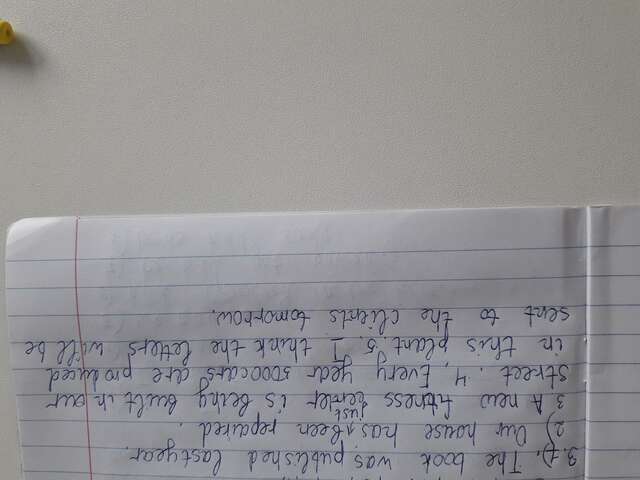 3. 1). The book was published last year.
2) Our house has just been repaired.
3 A new fitness center is being built in our
street. 4. Every year 5000 cars are produced
in this plant. 5. I think the letters will be
sent to the clients tomorrow.